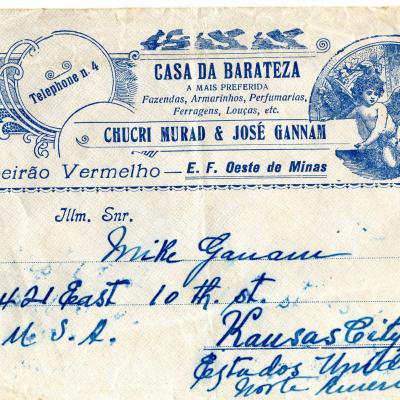 Telephone n. 4
CASA DA BARATEZA
A MAIS PREFERIDA
Fazendas, Armarinhos, Perfumarias,
Ferragens, Louças, etc.
CHUCRI MURAD & JOSÉ GANNAM
beirão Vermelho — E. F. Oeste de Minas
Illm. Snr.
Mike Ganam
421 East 10 th. st.
U. S. A. Kansas City
Estados Unid
Norte Ameri